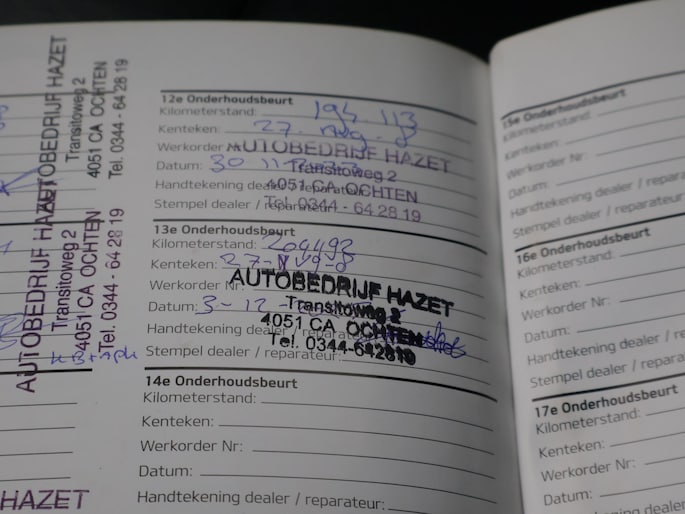 AUTOBEDRIJF HAZET
Transitoweg 2
4051 CA OCHTEN
Tel. 0344 - 64 28 19
AUTOBEDRIJF HAZET
Transitoweg 2
4051 CA OCHTEN
Tel. 0344 - 64 28 19
HAZET
12e Onderhoudsbeurt
Kilometerstand: 194.113
Kenteken: 27.
Werkorder
AUTOBEDRIJF HAZET
Datum: 30 11
Transitoweg 2
Handtekening dealer / reparateur:
4051 CA OCHTEN
Stempel dealer / reparateur:
Tel. 0344 - 64 28 19
13e Onderhoudsbeurt
Kilometerstand: 204492
Kenteken: 27-
Werkorder Nr:
AUTOBEDRIJF HAZET
Datum: 3-12
Transitoweg 2
4051 CA OCHTEN
Handtekening dealer / reparateur:
Tel. 0344-642819
Stempel dealer / reparateur:
14e Onderhoudsbeurt
Kilometerstand:
Kenteken:
Werkorder Nr:
Datum:
Handtekening dealer / reparateur:
15e Onderhoudsbeurt
Kilometerstand:
Kenteken:
Werkorder Nr:
Datum:
Handtekening dealer / repara
Stempel dealer / reparateur
16e Onderhoudsbeurt
Kilometerstand:
Kenteken:
Werkorder Nr:
Datum:
Handtekening dealer / repara
Stempel dealer / reparateur
17e Onderhoudsbeurt
Kilometerstand:
Kenteken:
Werkorder Nr:
Datum:
dealer